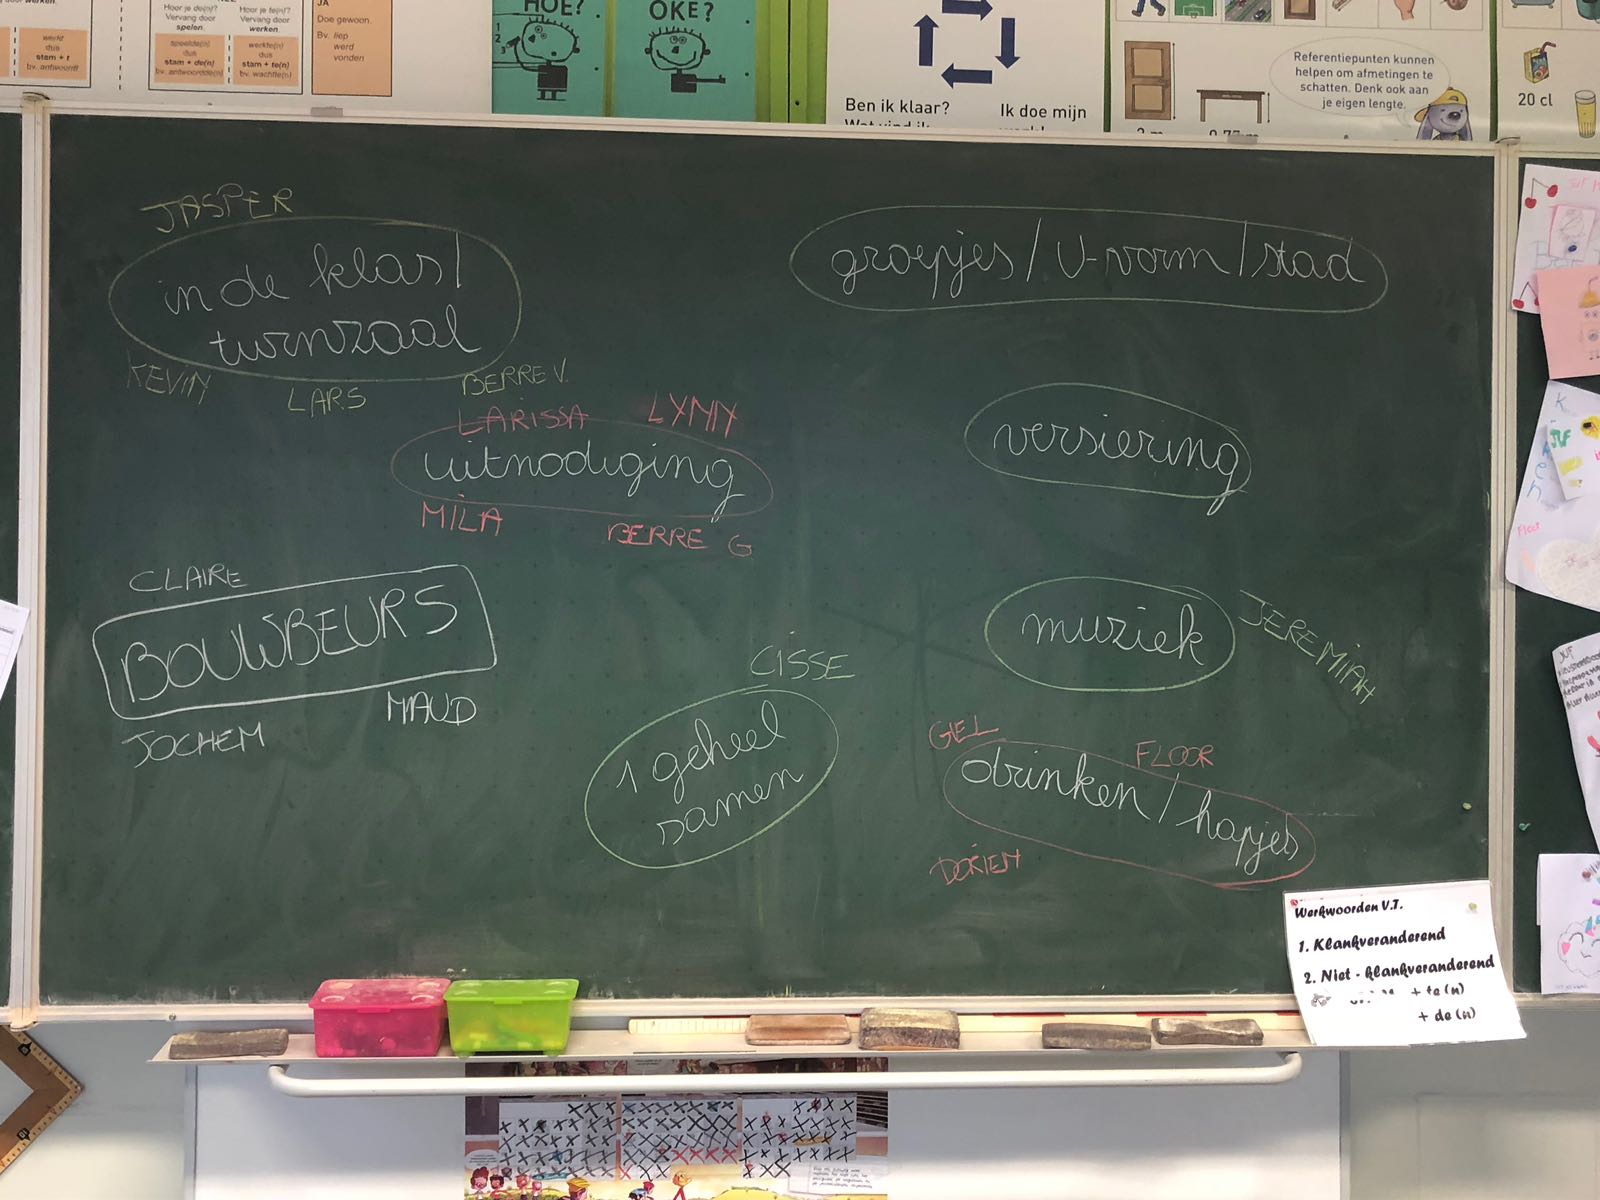 werkt
dus
stam + t
bv. antwoordt
Hoor je de(n)?
Vervang door
spelen.
speelde(n)
dus
stam + de(n)
bv. antwoordde(n)
Hoor je te(n)?
Vervang door
werken.
werkte(n)
dus
stam + te(n)
bv. wachtte(n)
JA
Doe gewoon.
Bv. liep
werd
vonden
HOE?
1
2
3
OKE?
Ben ik klaar?
Ik doe mijn
Referentiepunten kunnen
helpen om afmetingen te
schatten. Denk ook aan
je eigen lengte.
20 cl
JASPER
in de klas /
turnzaal
KEVIN
LARS
BERRE V.
groepjes / U-vorm / stad
LARISSA
LYNN
uitnodiging
MILA
BERRE G
versiering
CLAIRE
BOUWBEURS
MAUD
JOCHEM
muziek
JEREMIAH
CISSE
1 geheel
samen
GIEL
FLOOR
drinken / hapjes
DORIEN
Werkwoorden V.T.
1. Klankveranderend
2. Niet - klankveranderend
+ te (n)
+ de (n)
Floor
JUF